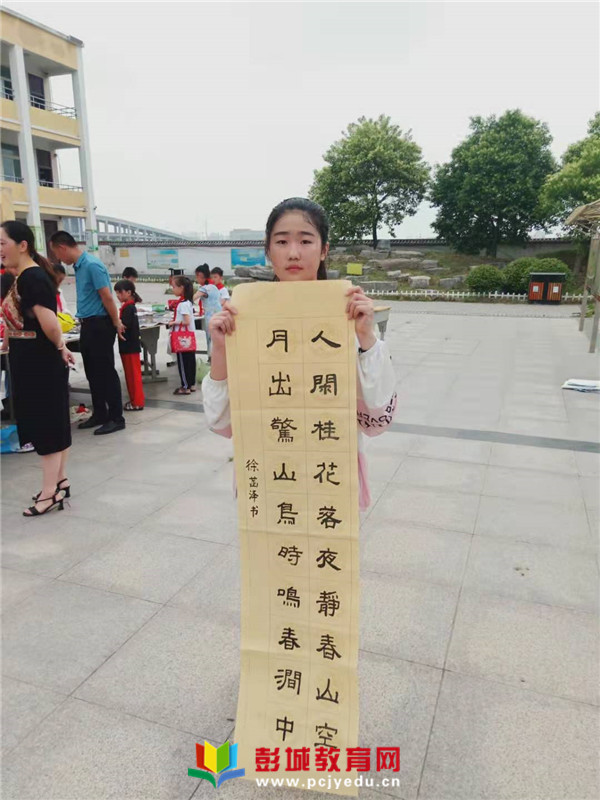 人閑桂花落夜靜春山空
月出驚山鳥時鳴春澗中
徐茁泽书
彭城教育网
www.pcjyedu.cn